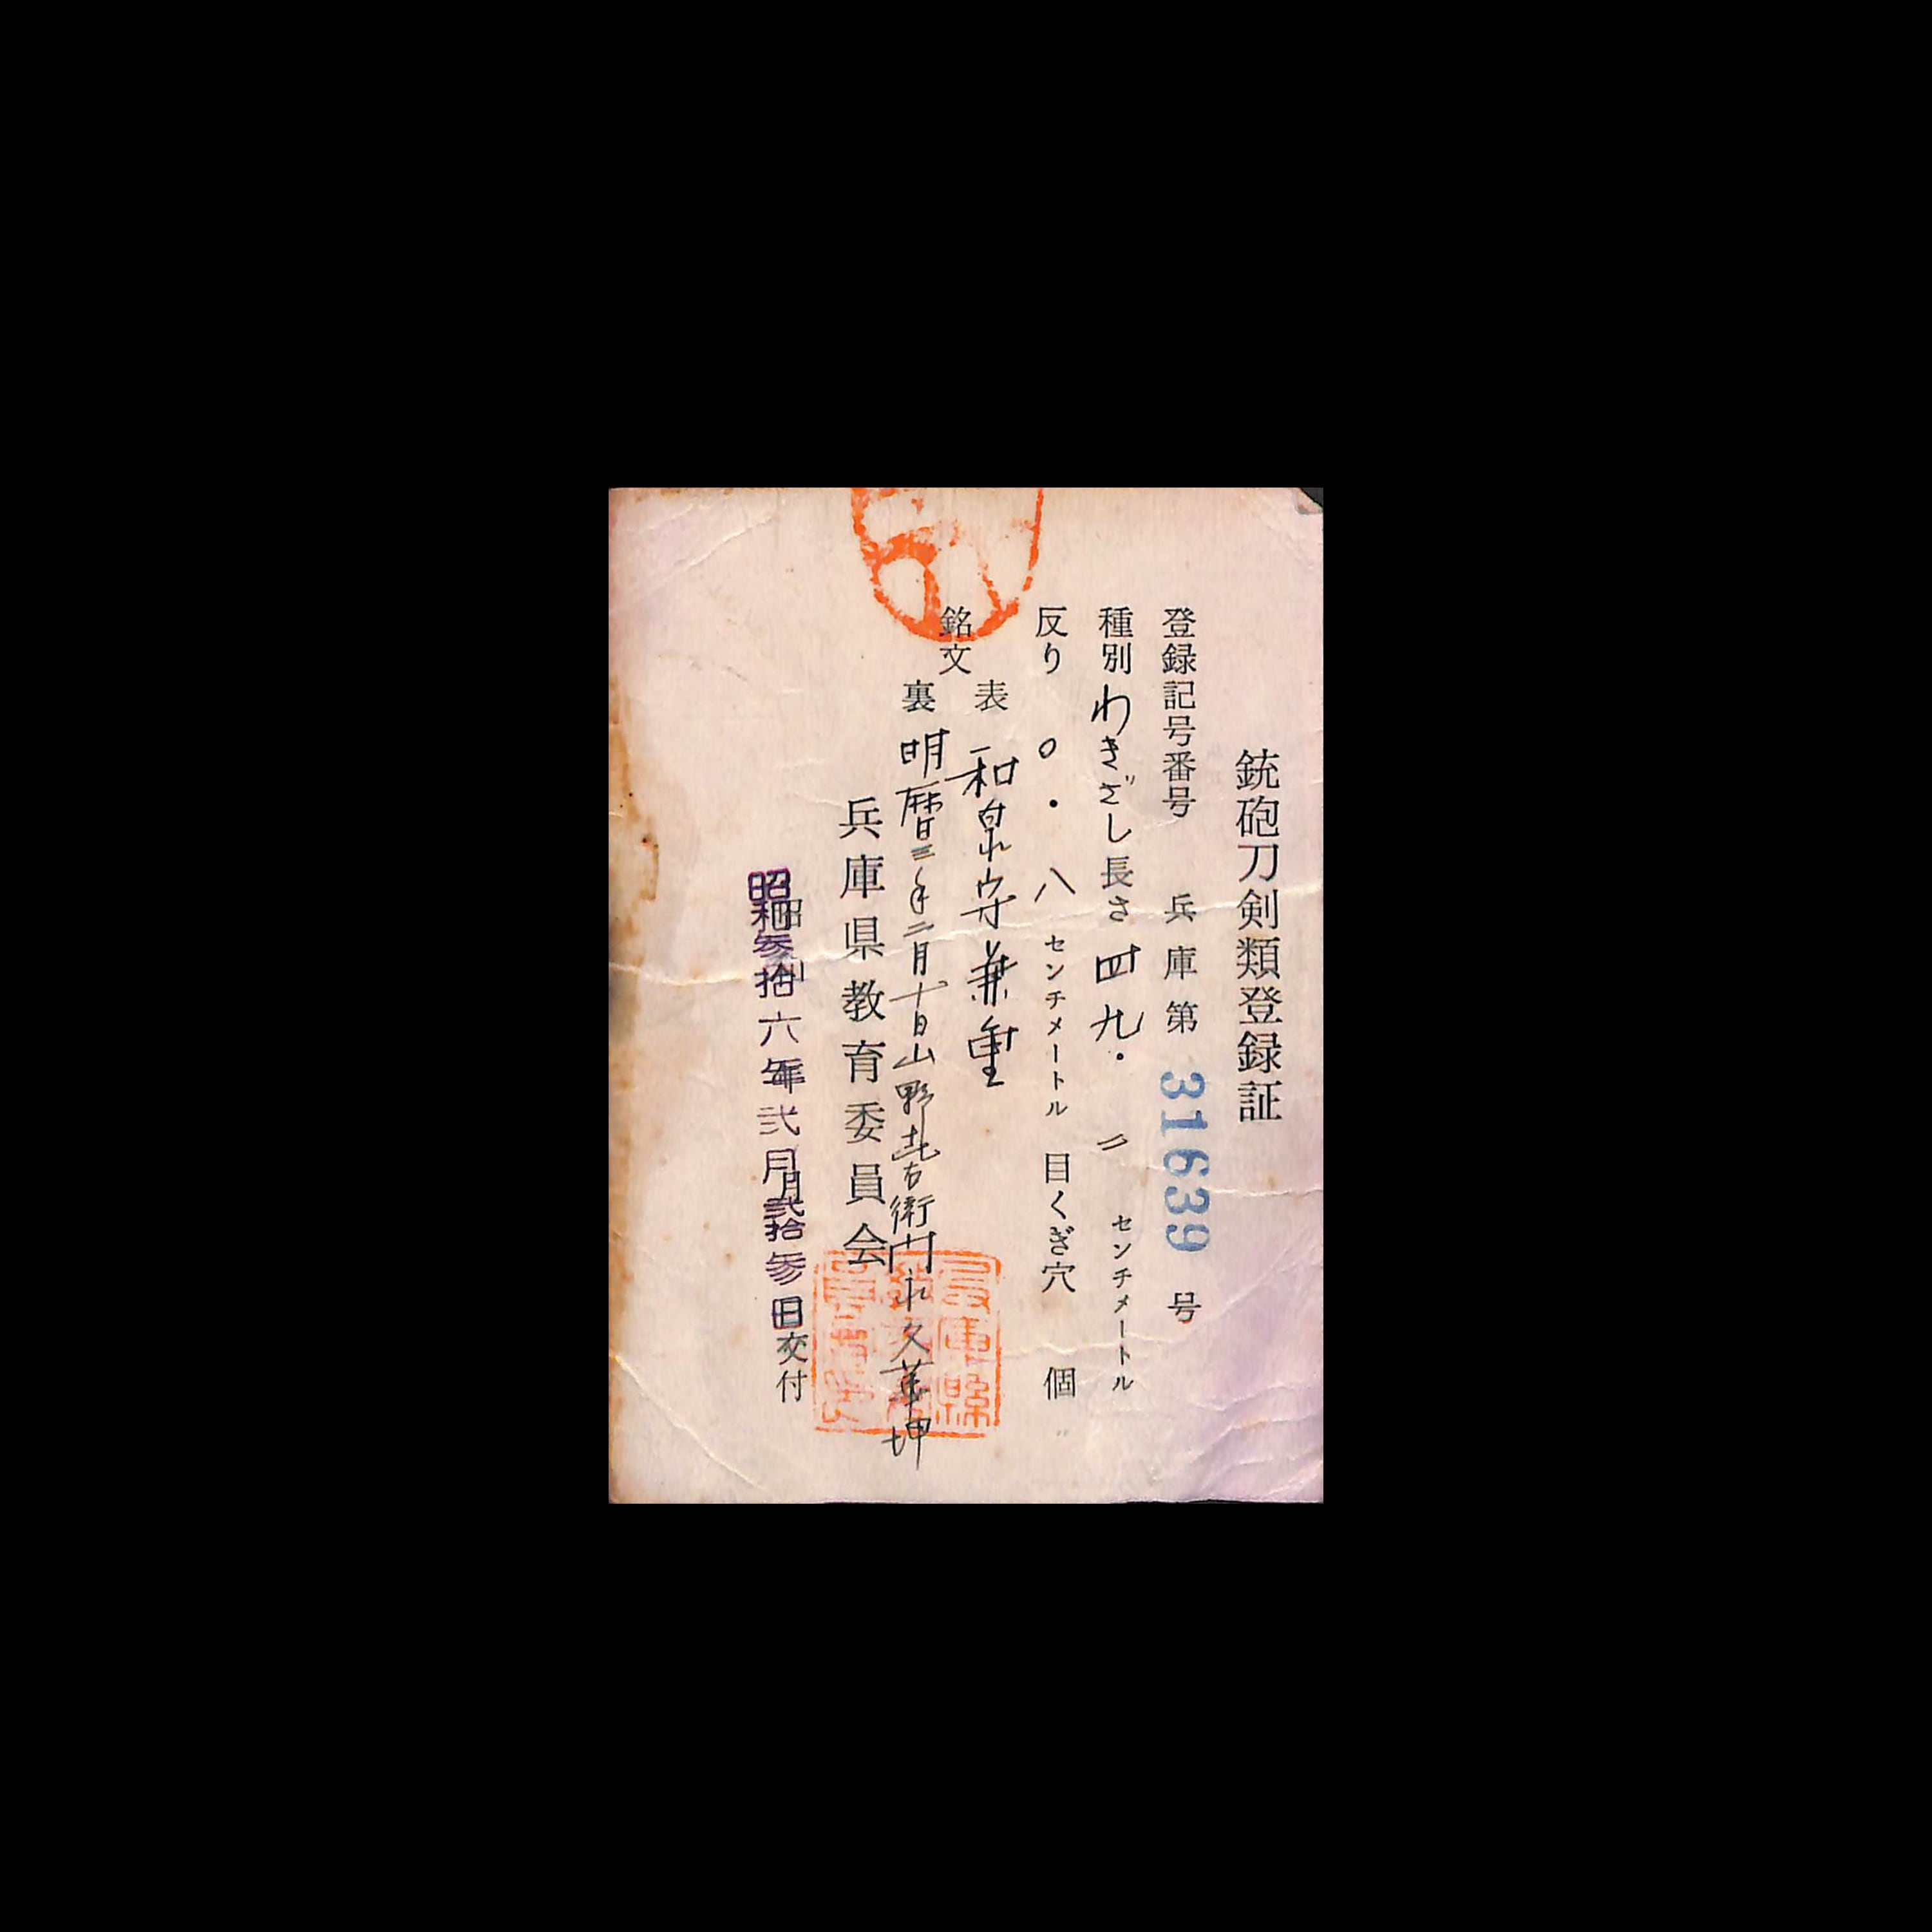 銃砲刀剣類登録証
登録記号番号 兵庫第 31639 号
種別 わきざし 長さ 四九・二 センチメートル
反り 〇・八 センチメートル 目くぎ穴 個
銘文
表 和泉守兼重
裏 明暦三年二月十日山野加右衛門永久
兵庫県教育委員会
昭和参拾六年弐月弐拾参日交付